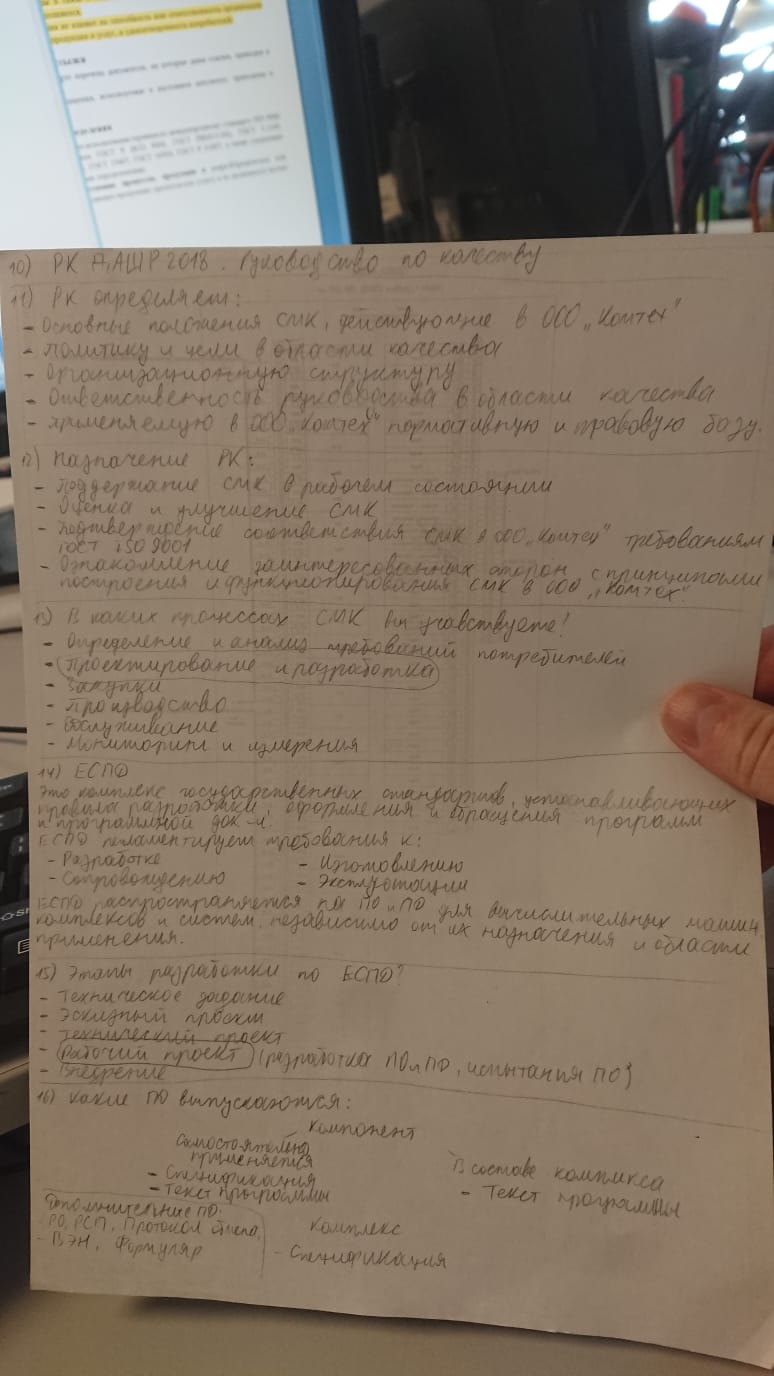 10) РК ДАШР 2018. Руководство по качеству
11) РК определяет:
- Основные положения СМК, действующие в ООО „Комтех"
- Политику и цели в области качества
- Организационную структуру
- Ответственность руководства в области качества
- Применяемую в ООО „Комтех" нормативную и правовую базу.
12) Назначение РК:
- Поддержание СМК в рабочем состоянии
- Оценка и улучшение СМК
- Подтверждение соответствия СМК в ООО „Комтех" требованиям
ГОСТ ISO 9001
- Ознакомление заинтересованных сторон с принципами
построения и функционирования СМК в ООО „Комтех".
13) В каких процессах СМК вы участвуете!
- Определение и анализ требований потребителей
- Проектирование и разработка
- Закупки
- Производство
- Обслуживание
- Мониторинг и измерения
14) ЕСПД
Это комплекс государственных стандартов, устанавливающих
правила разработки, оформления и обращения программ
и программной док-и.
ЕСПД регламентирует требования к:
- Разработке
- Изготовлению
- Сопровождению
- Эксплуотации
ЕСПД распространяется на ПО и ПД для вычислительных машин,
комплексов и систем, независимо от их назначения и области
применения.
15) Этапы разработки по ЕСПД?
- Техническое задание
- Эскизный проект
- Технический проект
- Рабочий проект (разработка ПО и ПД, испытания ПО)
- Внедрение
16) Какие ПД выпускаются:
Компонент
Самостоятельно
применяется
- Спецификация
- Текст программы
В составе комплекса
- Текст программы
Дополнительные ПД:
- РО, РСП, Протокол
- ВЭН, Формуляр
Комплекс
- Спецификация